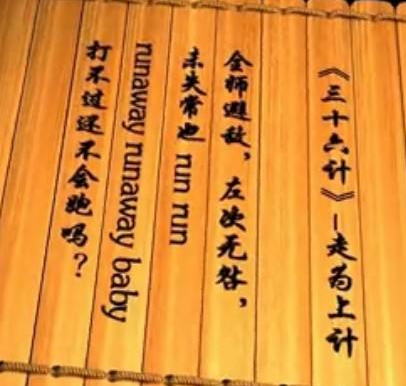 《三十六计》-走为上计
全师避敌，左次无咎，
未失常也 run run
runaway runaway baby
打不过还不会跑吗？